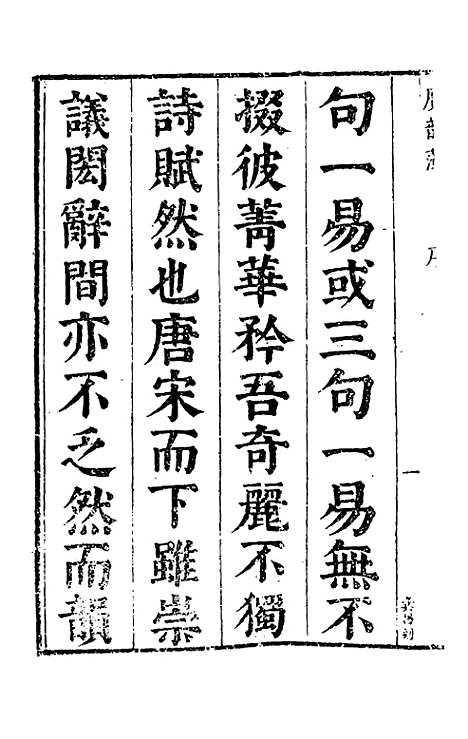 句一易或三句一易無不
掇彼菁華矜吾奇麗不獨
詩賦然也唐宋而下雖崇
議閎辭間亦不乏然而韻
一